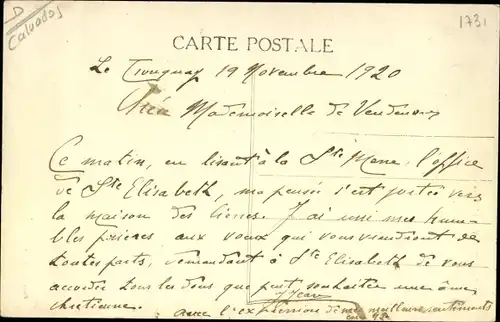 D
Calvados
1731
CARTE POSTALE
Le Tronquay 19 Novembre 1920
Mademoiselle de Vendeuvre
Ce matin, en lisant à la Ste Messe l'office
de Ste Elisabeth, ma pensée s'est portée vers
la maison des liens. J'ai uni mes hum-
bles prières aux voeux qui vous viendront de
toutes parts, demandant à Ste Elisabeth de vous
accorder tous les dons que peut souhaiter une âme
chrétienne.
avec l'expression de mes meilleurs sentiments